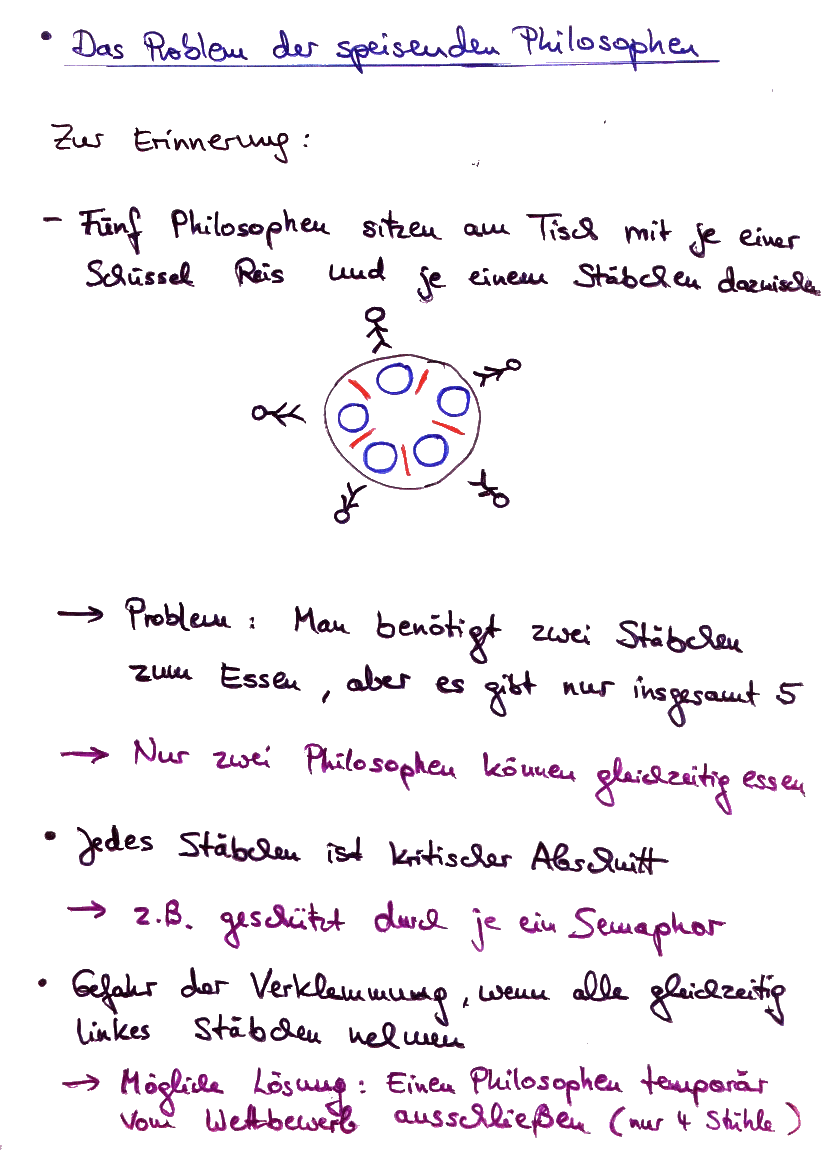 • Das Problem der speisenden Philosophen
Zur Erinnerung:
- Fünf Philosophen sitzen am Tisch mit je einer
Schüssel Reis und je einem Stäbchen dazwischen
→ Problem: Man benötigt zwei Stäbchen
zum Essen, aber es gibt nur insgesamt 5
→ Nur zwei Philosophen können gleichzeitig essen
• Jedes Stäbchen ist kritischer Abschnitt
→ z.B. geschützt durch je ein Semaphor
• Gefahr der Verklemmung, wenn alle gleichzeitig
linkes Stäbchen nehmen
→ Mögliche Lösung: Einen Philosophen temporär
vom Wettbewerb ausschließen (nur 4 Stühle)